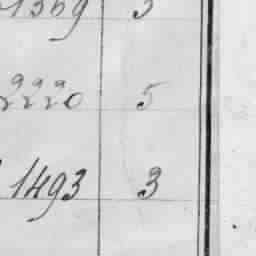 1369 3
5
1493 3